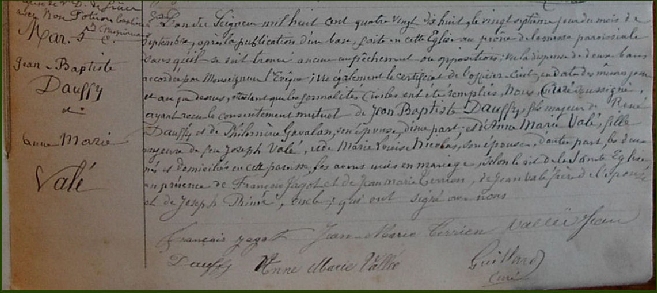 Mar.
Jean-Baptiste
Dauffy
et
Anne Marie
Valé
L'an de Seigneur mil huit cent quatre vingt dix huit, le vingt septième jour du mois de
Septembre, après la publication d'un ban, faite en cette Eglise au prône de la messe paroissiale
sans qu'il se soit trouvé aucun empêchement ou opposition; Vu la dispense de deux bans
accordée par Monseigneur l'Evêque; Vu également le certificat de l'officier Civil en date du même jour
et an que dessus, constatant que les formalités civiles ont été remplies, Nous, Curé soussigné,
ayant reçu le consentement mutuel de Jean Baptiste Dauffy, fils majeur de René
Dauffy et de Philomène Gavalan, son épouse, d'une part; et d'Anne Marie Valé, fille
majeure de feu Joseph Valé, et de Marie Louise Nicolas, son épouse, d'autre part, les deux
nés et domiciliés en cette paroisse, les avons unis en mariage, selon le rit de la Sainte Eglise,
en présence de François Jégot et de Jean Marie Terrien, de Jean Valé frère de l'épouse
et de Joseph qui ont signé avec nous
François Jegot Jean Marie Terrien Vallée Jean
Dauffy Anne Marie Vallée Guillard
Curé